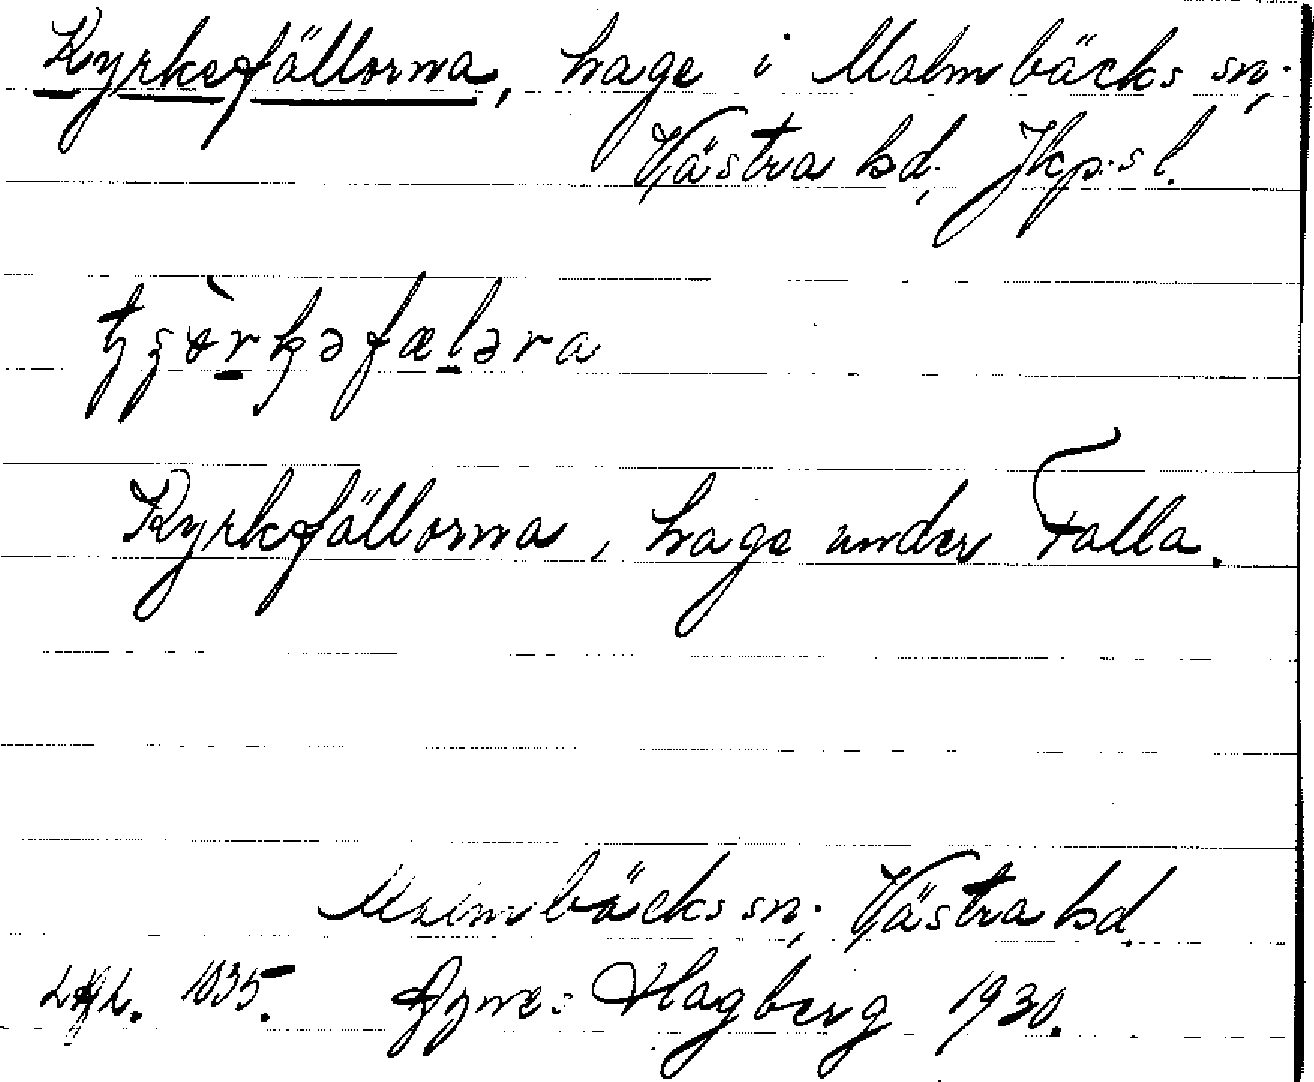 Kyrkefällorna, hage i Malmbäcks sn;
Västra hd; Jkp:s l.
Kyrkefällorna, hage under Falla.
Malmbäcks sn; Västra hd.
1035. Agnes Hagberg 1930.